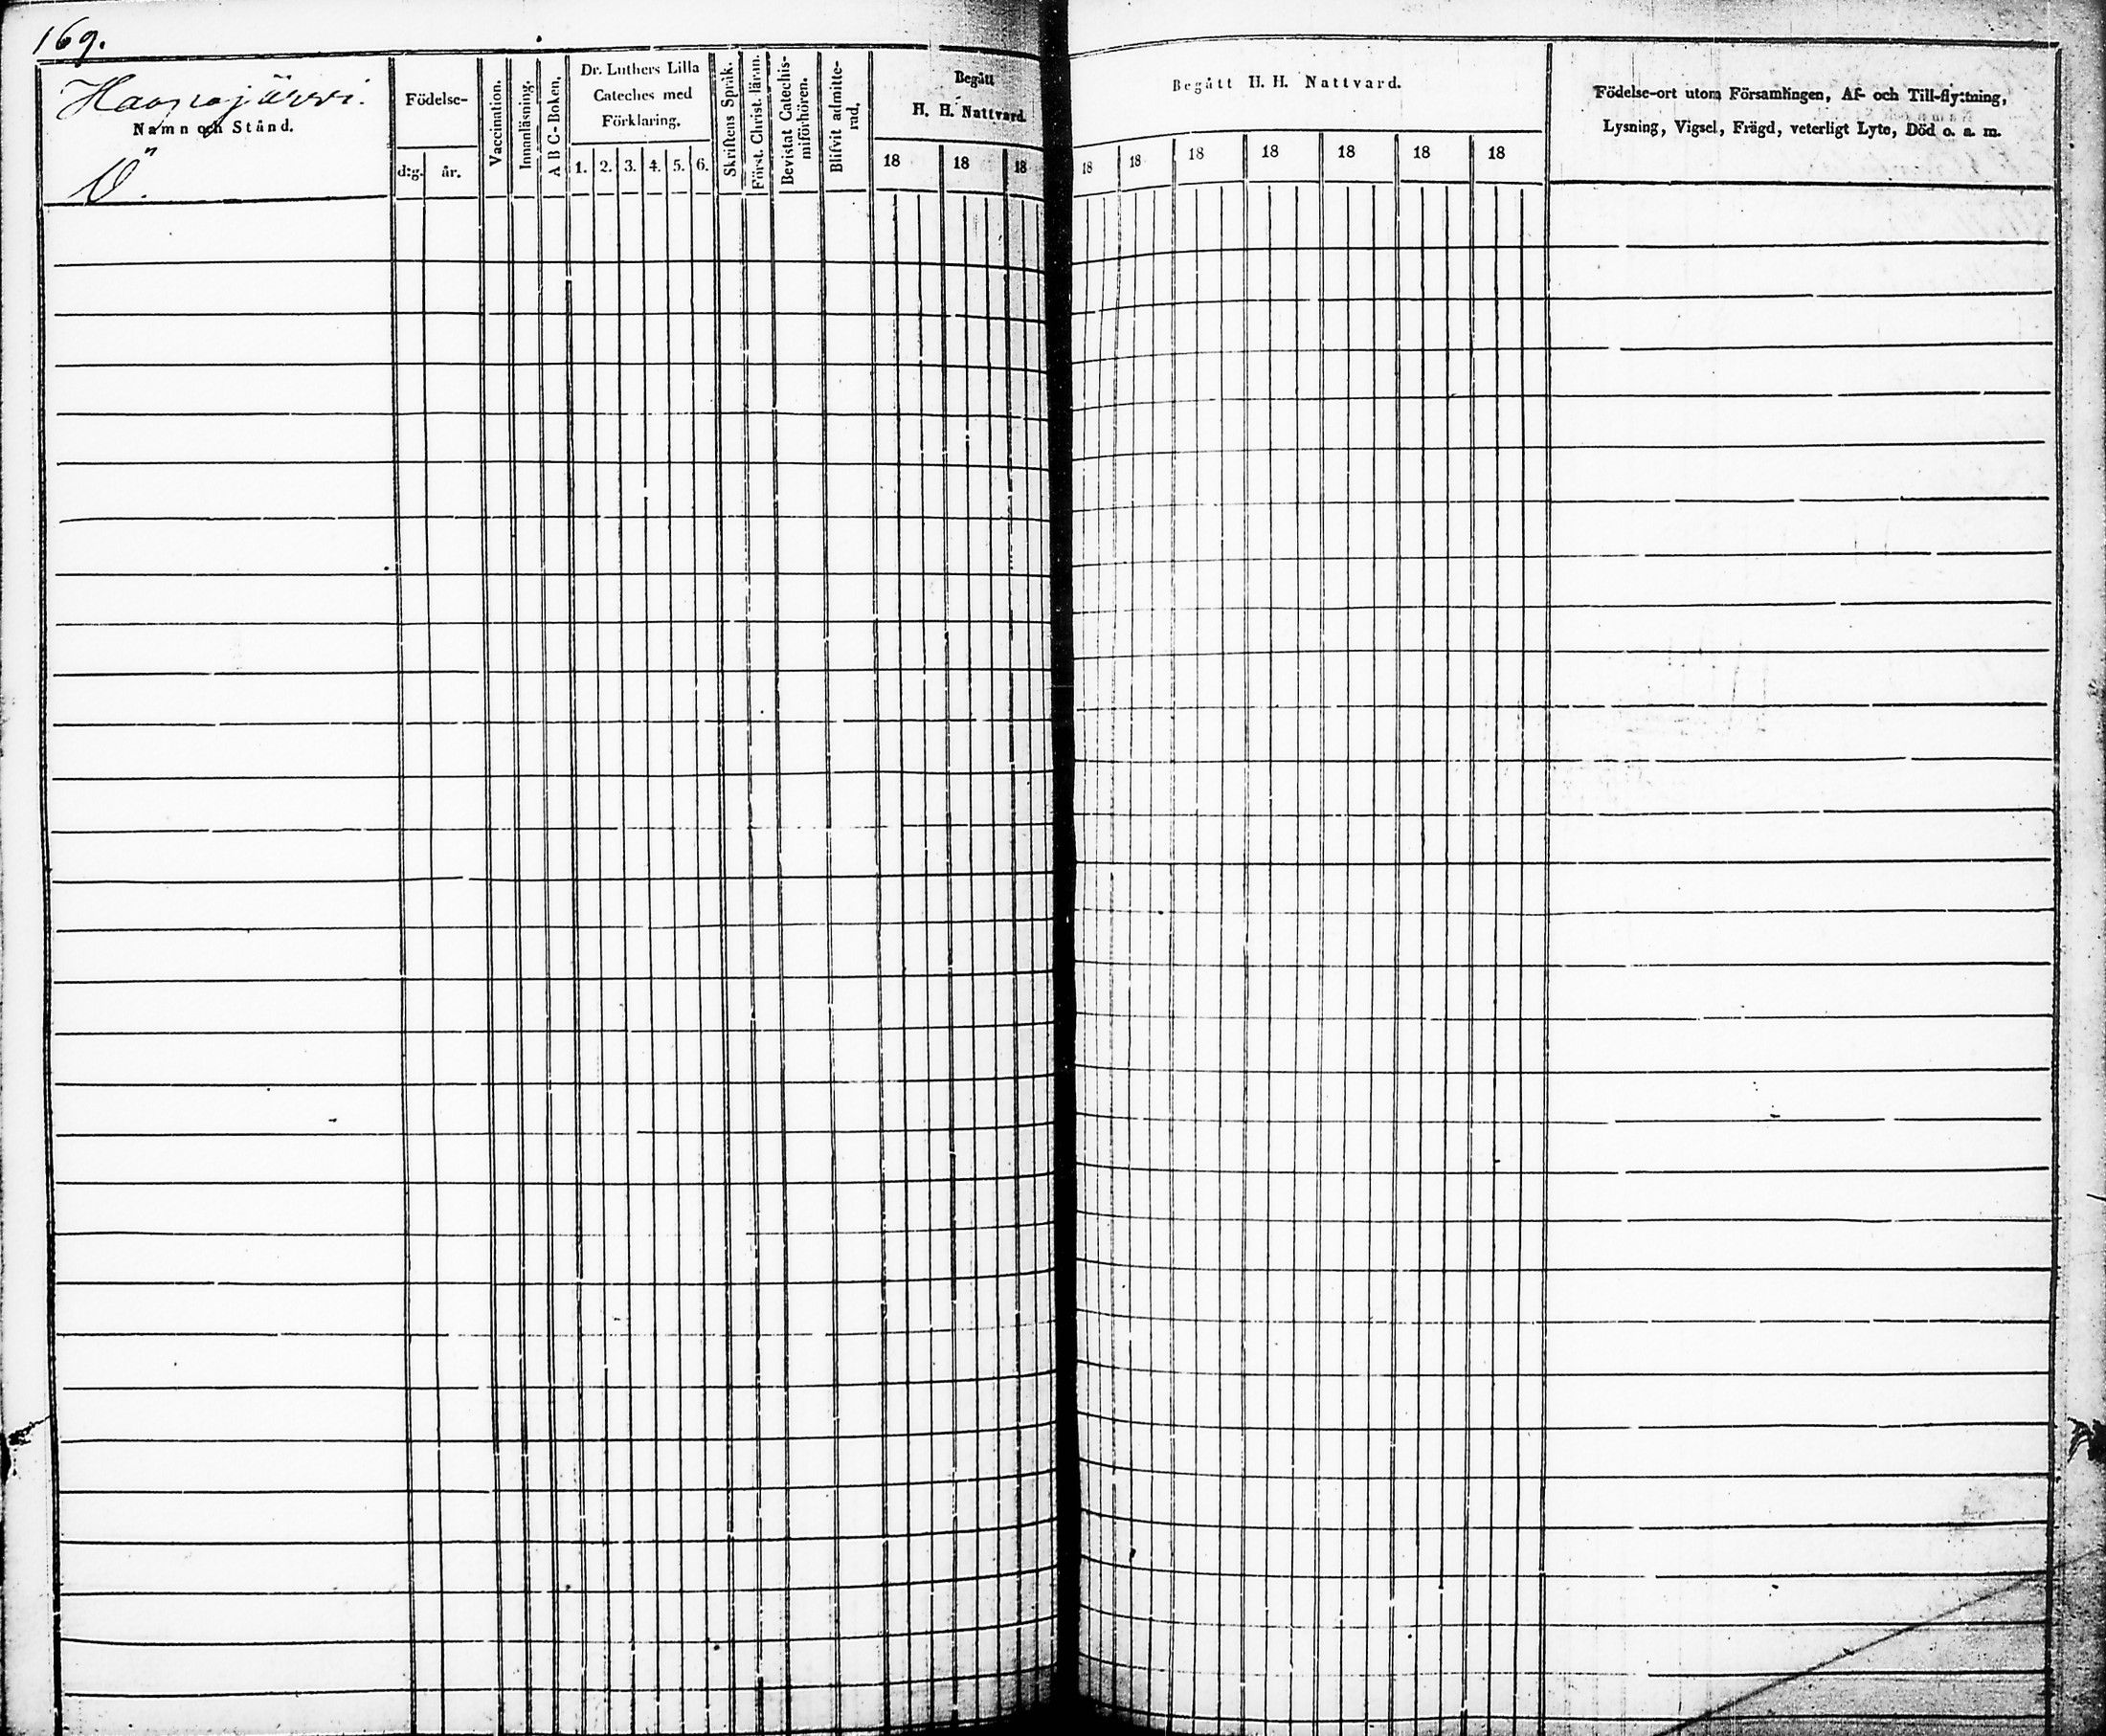 169.
Haapajärvi.
Namn och Stånd.
Ö.
Födelse-
d:g. år.
Vaccination.
Innanläsning.
A B C-Boken.
Dr. Luthers Lilla
Cateches med
Förklaring.
1. 2. 3. 4. 5. 6.
Skriftens Språk.
Först. Christ. läran.
Bevistat Catechis-
miförhören.
Blifvit admitte-
rad.
Begått
H. H. Nattvard.
18 18 18
Begått H. H. Nattvard.
18 18 18 18 18 18 18
Födelse-ort utom Församlingen, Af- och Till-flyttning,
Lysning, Vigsel, Frägd, veterligt Lyte, Död o. a. m.